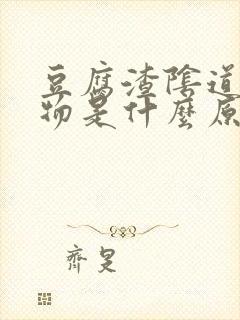 豆腐渣陰道
物是什麼原
齊旻